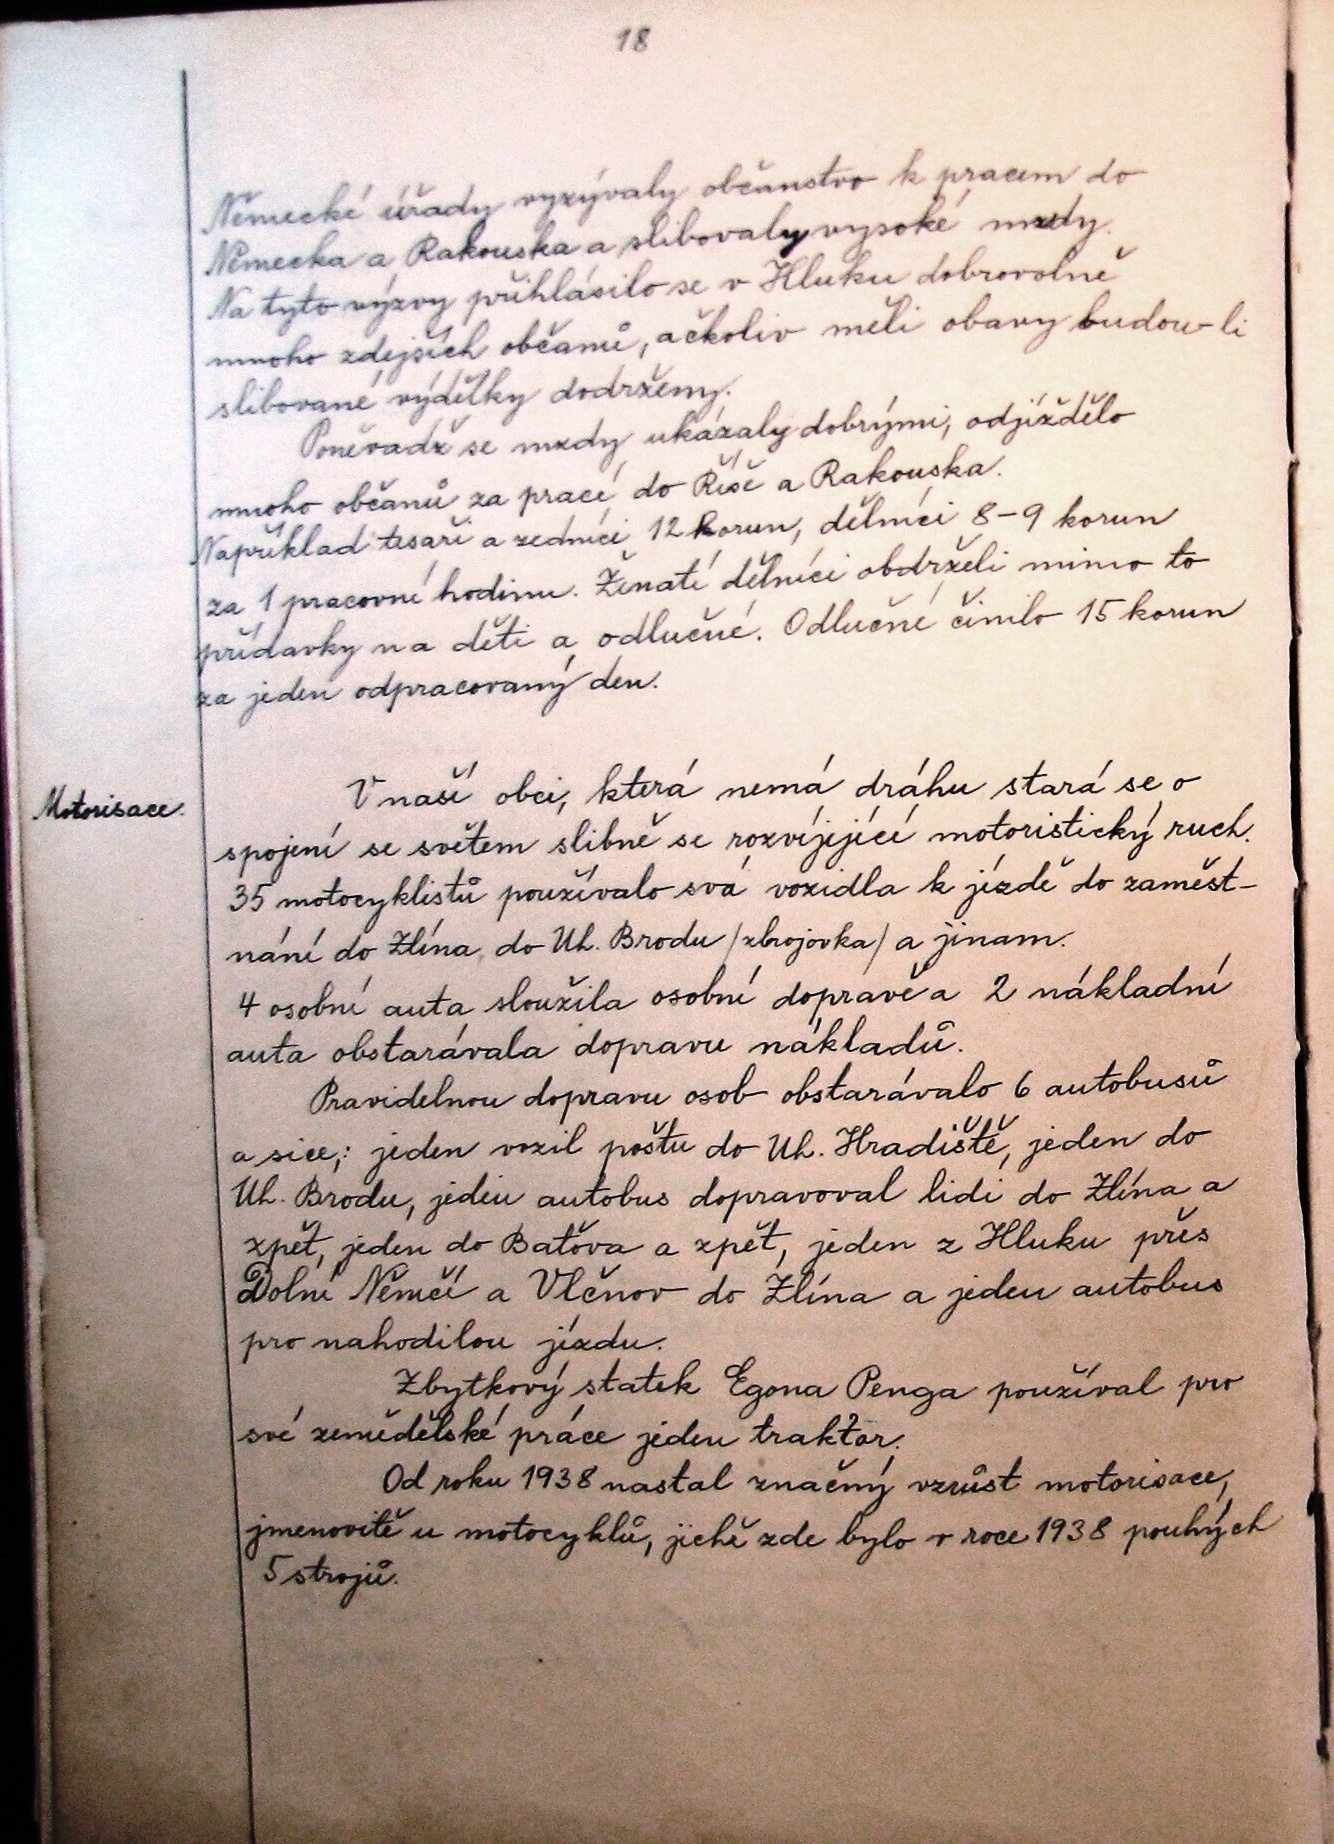 18
Německé úřady vyzývaly občanstvo k pracem do
Německa a Rakouska a slibovaly vysoké mzdy.
Na tyto výzvy přihlásilo se v Hluku dobrovolně
mnoho zdejších občanů, ačkoliv měli obavy budou-li
slibované výdělky dodrženy.
Poněvadž se mzdy ukázaly dobrými, odjíždělo
mnoho občanů za prací do Říše a Rakouska.
Například tesaři a zedníci 12 korun, dělníci 8-9 korun
za 1 pracovní hodinu. Ženatí dělníci obdrželi mimo to
přídavky na děti a odlučné. Odlučné činilo 15 korun
za jeden odpracovaný den.
Motorisace.
V naší obci, která nemá dráhu stará se o
spojení se světem slibně se rozvíjející motoristický ruch.
35 motocyklistů používalo svá vozidla k jízdě do zaměst-
nání do Zlína, do Uh. Brodu /zbrojovka/ a jinam.
4 osobní auta sloužila osobní dopravě a 2 nákladní
auta obstarávala dopravu nákladů.
Pravidelnou dopravu osob obstarávalo 6 autobusů
a sice,: jeden vozil poštu do Uh. Hradiště, jeden do
Uh. Brodu, jeden autobus dopravoval lidi do Zlína a
zpět, jeden do Baťova a zpět, jeden z Hluku přes
Dolní Němčí a Vlčnov do Zlína a jeden autobus
pro nahodilou jízdu.
Zbytkový statek Egona Penga používal pro
své zemědělské práce jeden traktor.
Od roku 1938 nastal značný vzrůst motorisace,
jmenovitě u motocyklů, jichž zde bylo v roce 1938 pouhých
5 strojů.